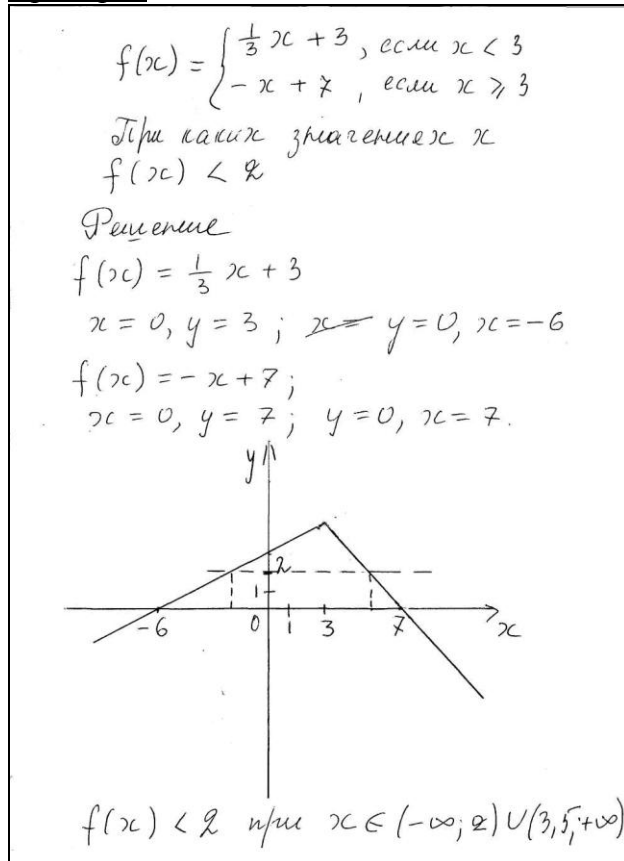 f(x) = { 1/3 x + 3, если x < 3
- x + 7, если x ⩾ 3
При каких значениех x
f(x) < 2
Решение
f(x) = 1/3 x + 3
x = 0, y = 3 ; y = 0, x = -6
f(x) = - x + 7 ;
x = 0, y = 7 ; y = 0, x = 7.
y
2
1
-6 0 1 3 7 x
f(x) < 2 при x ∈ (-∞; 2) ∪ (3,5; +∞)